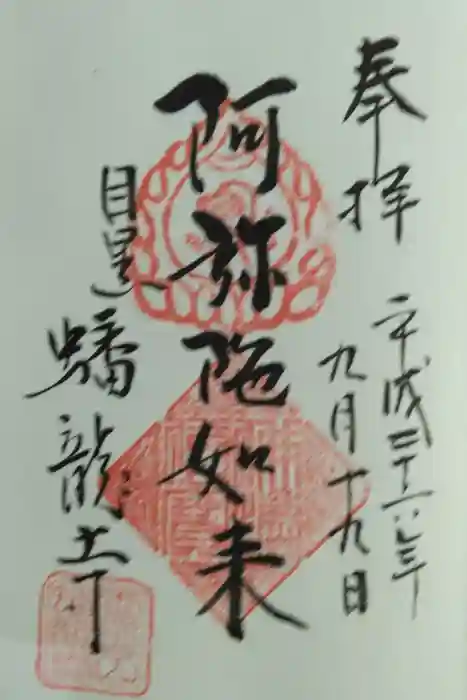 奉拝
平成二十六年
九月十九日
阿弥陀如来
目黒
蟠龍寺